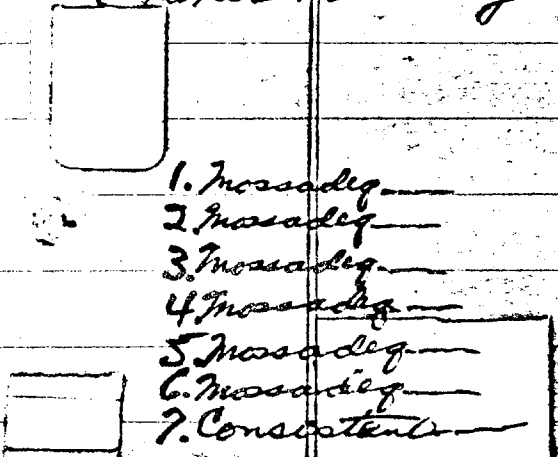 1. Mossadeq
2. Mossadeq
3. Mossadeq
4. Mossadeq
5. Mossadeq
6. Mossadeq
7. Consistent